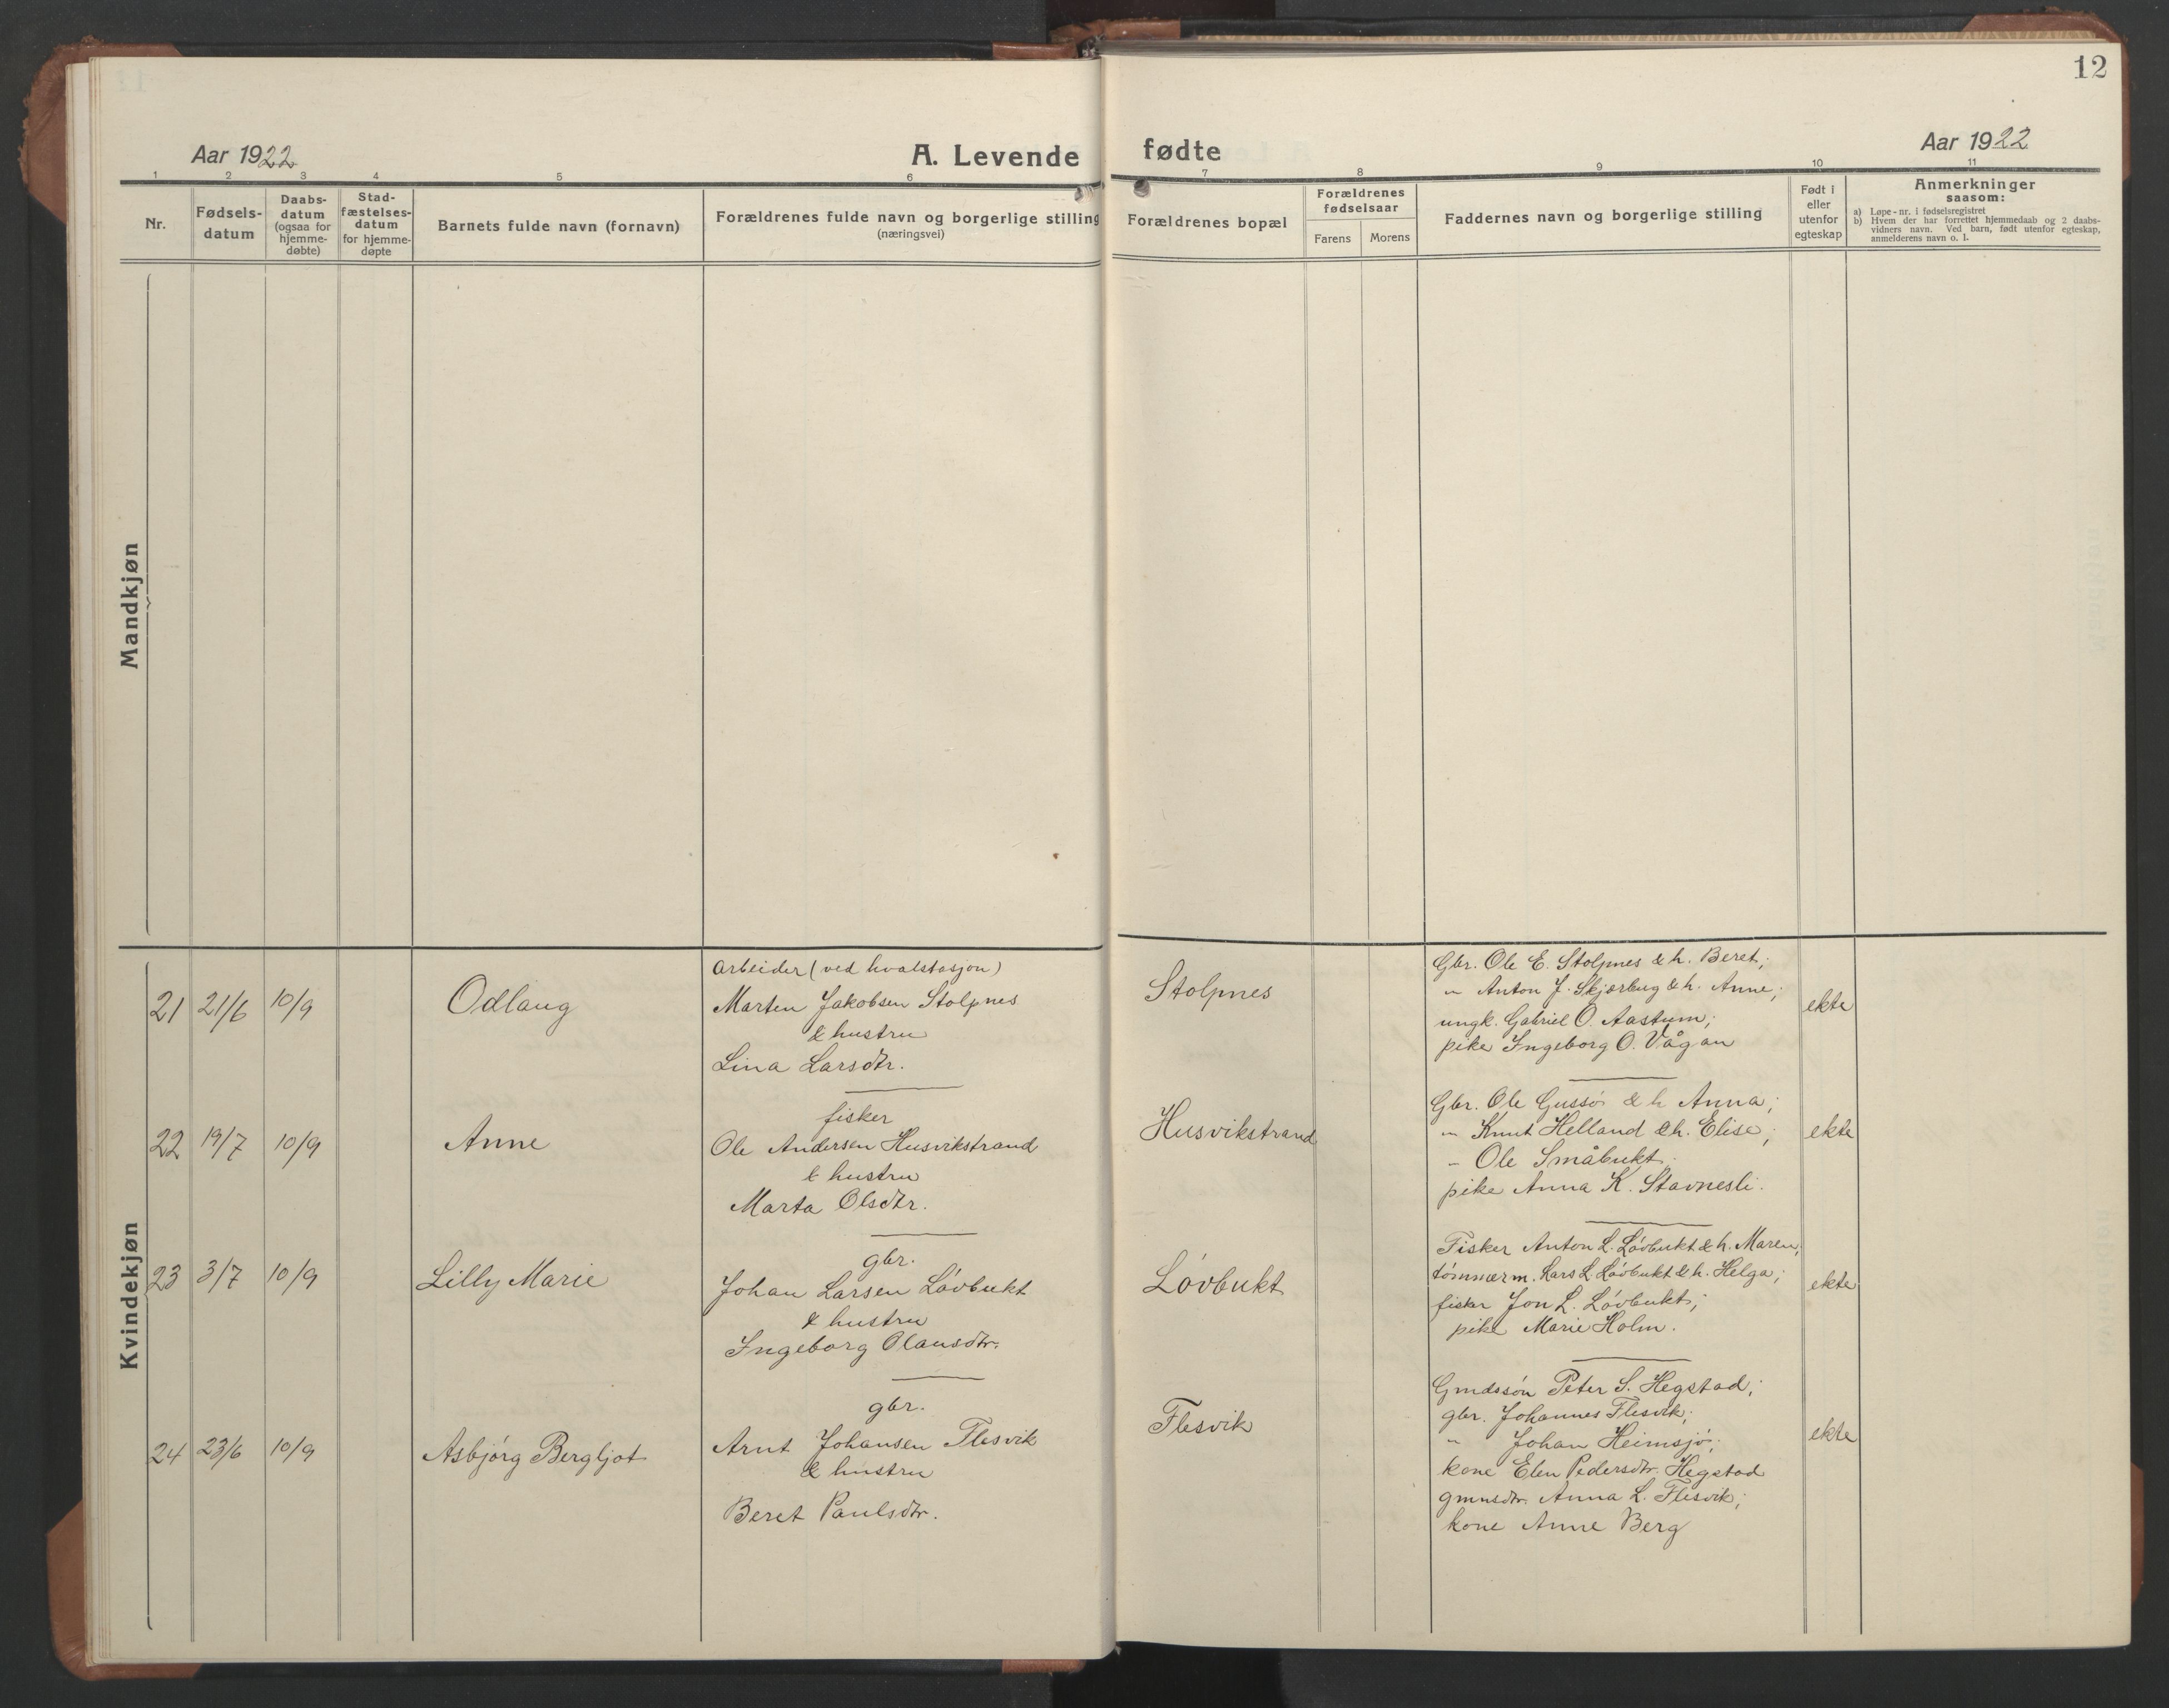 12
Aar 1922
A. Levende fødte
Aar 1922
1 2 3 4 5 6 7 8 9 10 11
Nr.
Fødsels-
datum
Daabs-
datum
(ogsaa for
hjemme-
døbte)
Stad-
fæstelses-
datum
for hjemme-
døpte
Barnets fulde navn (fornavn)
Forældrenes fulde navn og borgerlige stilling
(næringsvei)
Forældrenes bopæl
Forældrenes
fødselsaar
Farens Morens
Faddernes navn og borgerlige stilling
Født i
eller
utenfor
egteskap
Anmerkninger
saasom:
a) Løpe-nr. i fødselsregistret
b) Hvem der har forrettet hjemmedaab og 2 daabs-
vidners navn. Ved barn, født utenfor egteskap,
anmelderens navn o. l.
Mandkjøn
Kvindekjøn
21 21/6 10/9 Odlaug
arbeider (ved hvalstasjon)
Marten Jakobsen Stolpnes
& hustru
Lina Larsdtr.
Stolpnes
Gbr. Ole E. Stolpnes & h. Beret;
" Anton J. Skjærbug & h. Anne;
ungk. Gabriel O. Aastum;
pike Ingeborg O. Vågan
ekte
22 19/7 10/9 Anne
fisker
Ole Andersen Husvikstrand
& hustru
Marta Olsdtr.
Husvikstrand
Gbr. Ole Gussö & h Anna;
" Knut Helland & h. Elise;
" Ole Småbukt.
pike Anna K. Stavnesli.
ekte
23 3/7 10/9 Lilly Marie
gbr.
Johan Larsen Lövbukt
& hustru
Ingeborg Olausdtr.
Lövbukt
Fisker Anton L. Lövbukt & h. Maren;
tömmerm. Lars L. Lövbukt & h. Helga;
fisker Jon L. Lövbukt;
pike Marie Holm.
ekte
24 23/6 10/9 Asbjörg Bergljot
gbr.
Arnt Johansen Flesvik
& hustru
Beret Paulsdtr.
Flesvik
Gmdssön Peter S. Hegstad;
gbr. Johannes Flesvik;
" Johan Heimsjö;
kone Elen Pedersdtr. Hegstad
gmnsdtr. Anna L. Flesvik;
kone Anne Berg
ekte